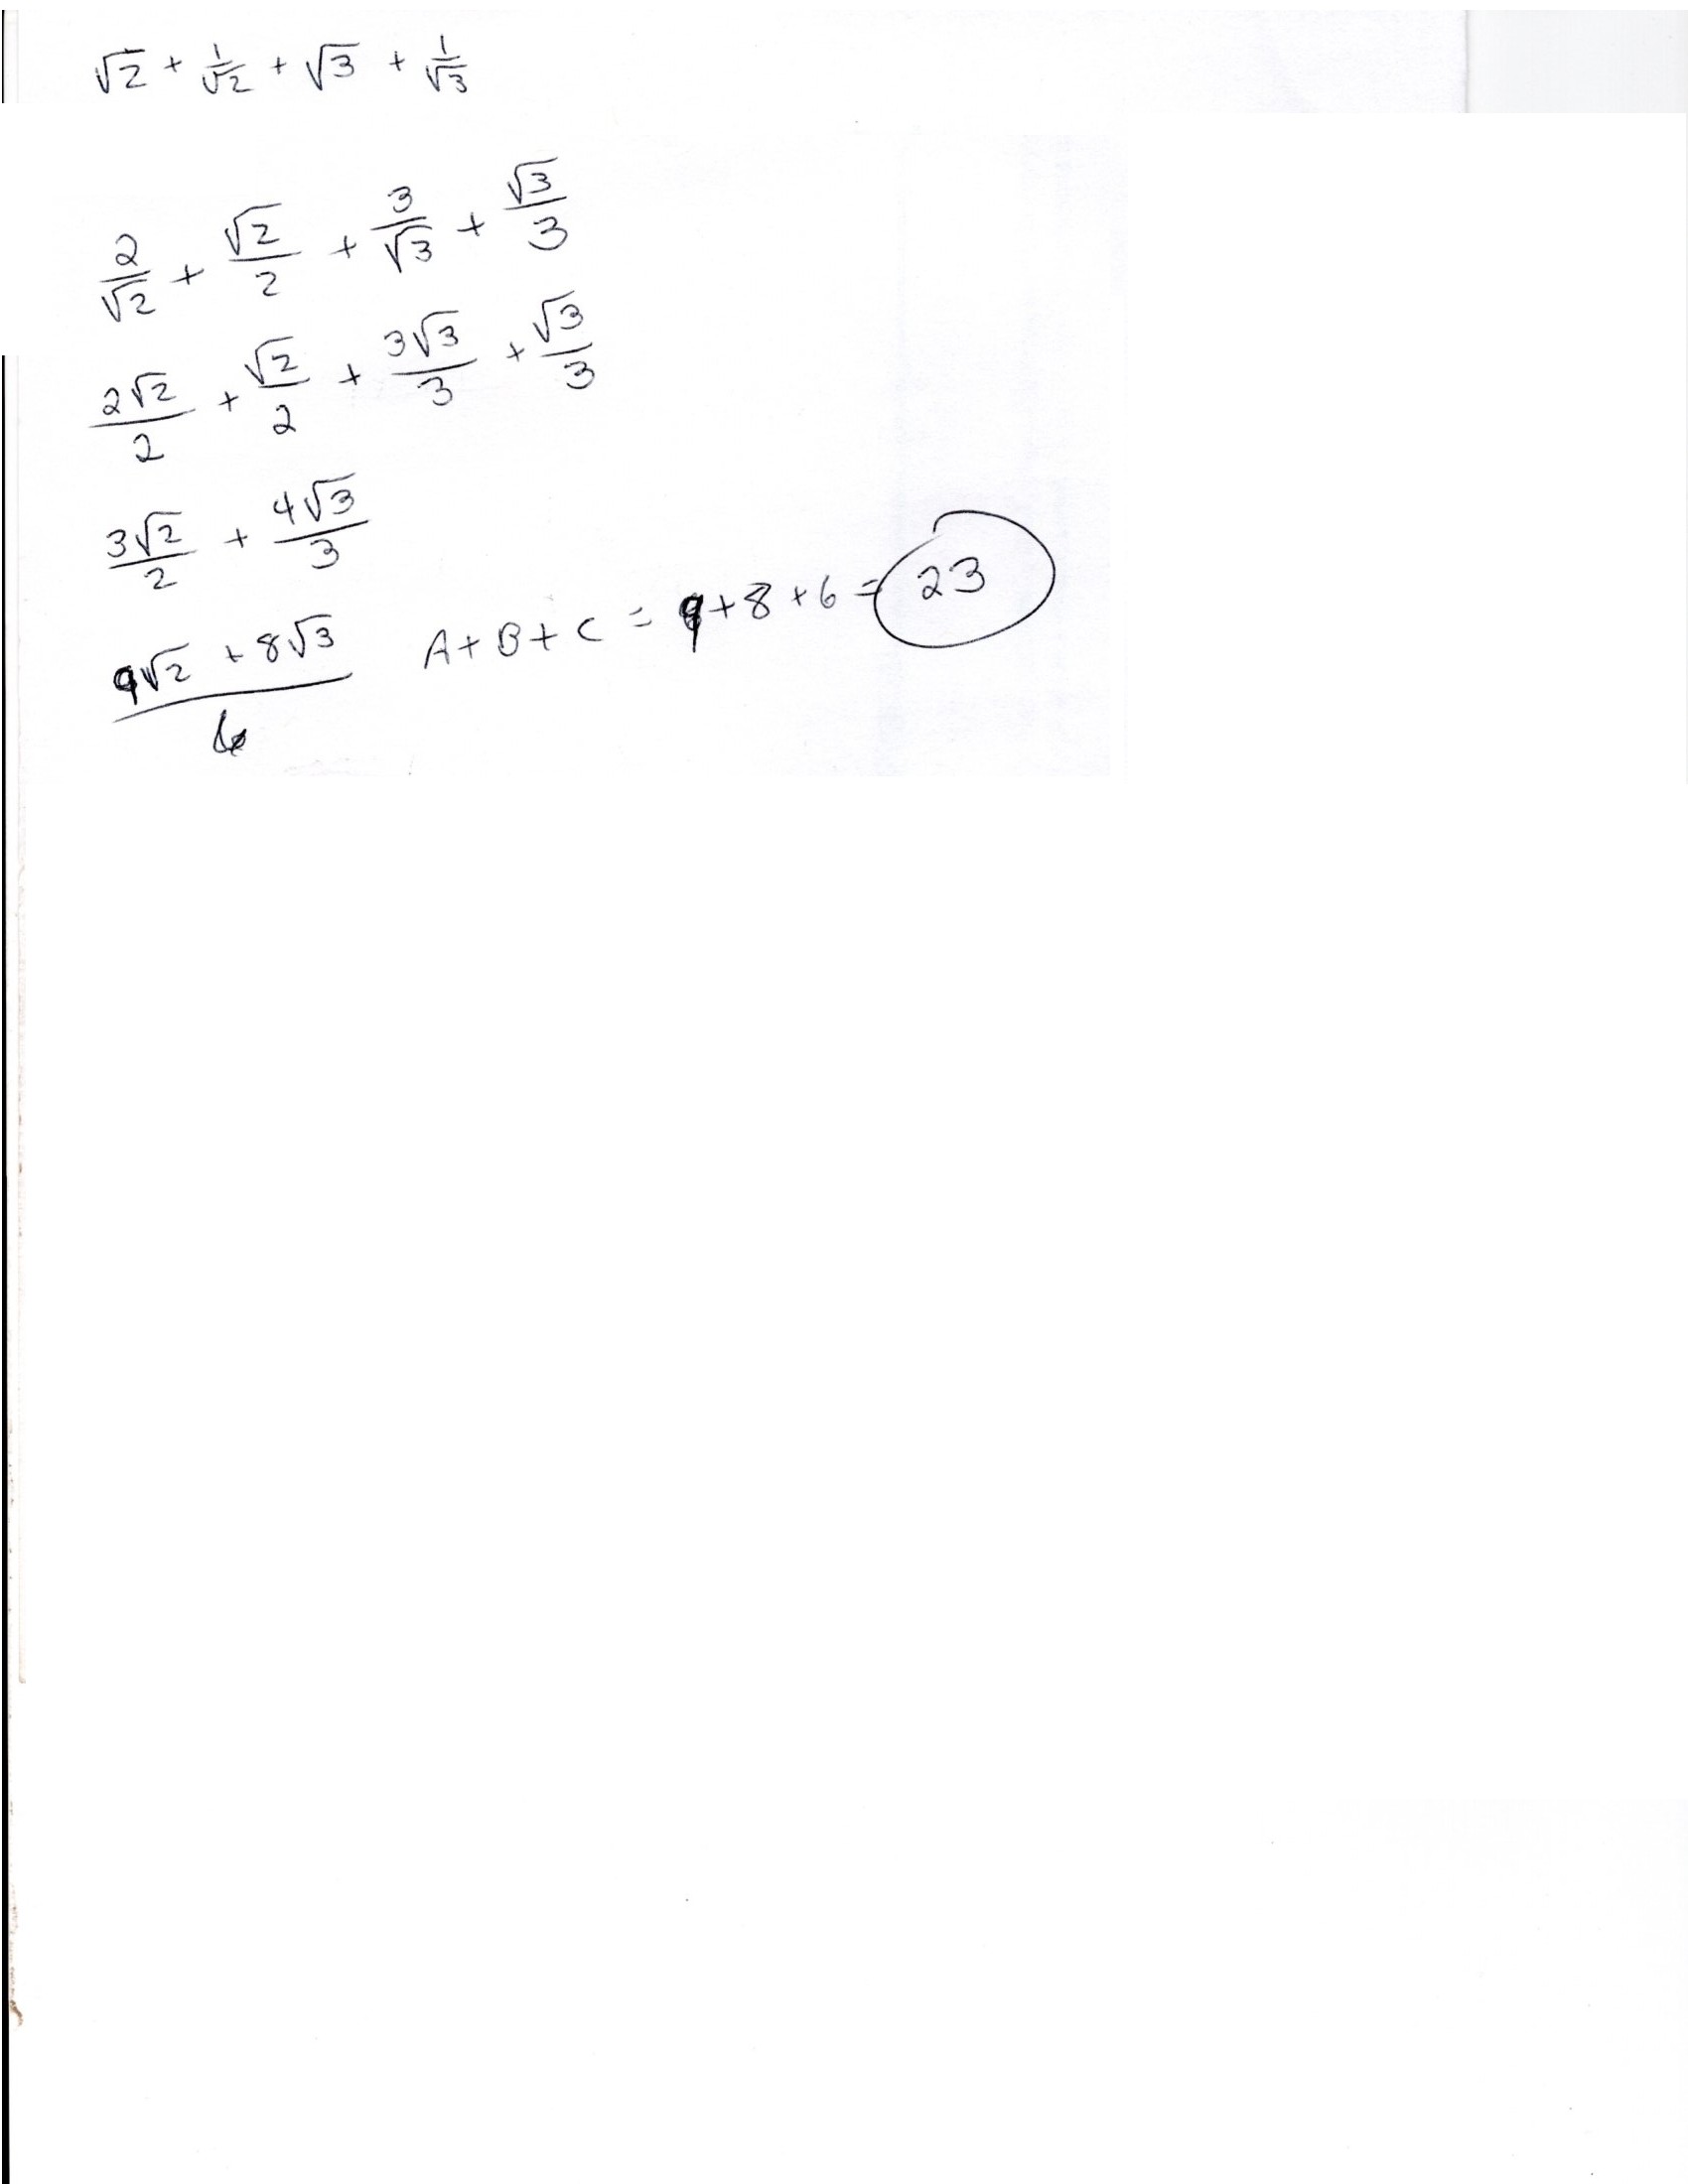 √2 + 1/√2 + √3 + 1/√3
2/√2 + √2/2 + 3/√3 + √3/3
2√2/2 + √2/2 + 3√3/3 + √3/3
3√2/2 + 4√3/3
(9√2 + 8√3)/6 A + B + C = 9 + 8 + 6 = 23